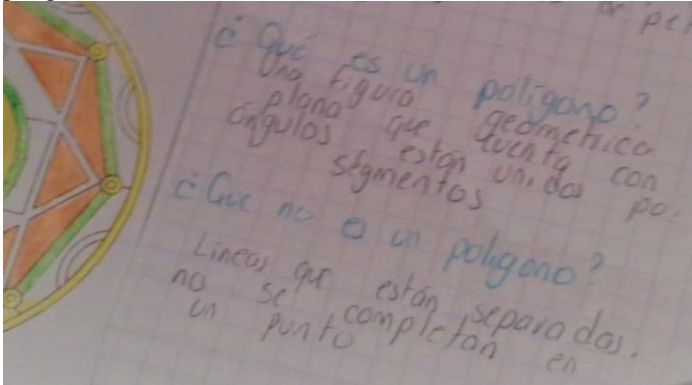 o pe
¿Qué es un polígono?
Una figura geometrica
plana que cuenta con
ángulos están unidos po
segmentos
¿Que no es un poligono?
Líneas que están separadas.
no se completan en
un punto